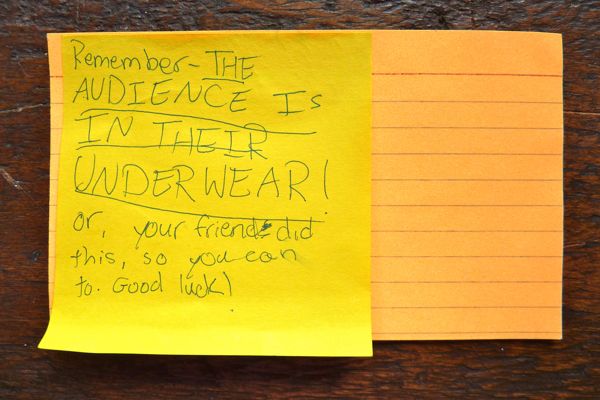 Remember - THE
AUDIENCE IS
IN THEIR
UNDERWEAR!
or, your friends did
this, so you can
to. Good luck!